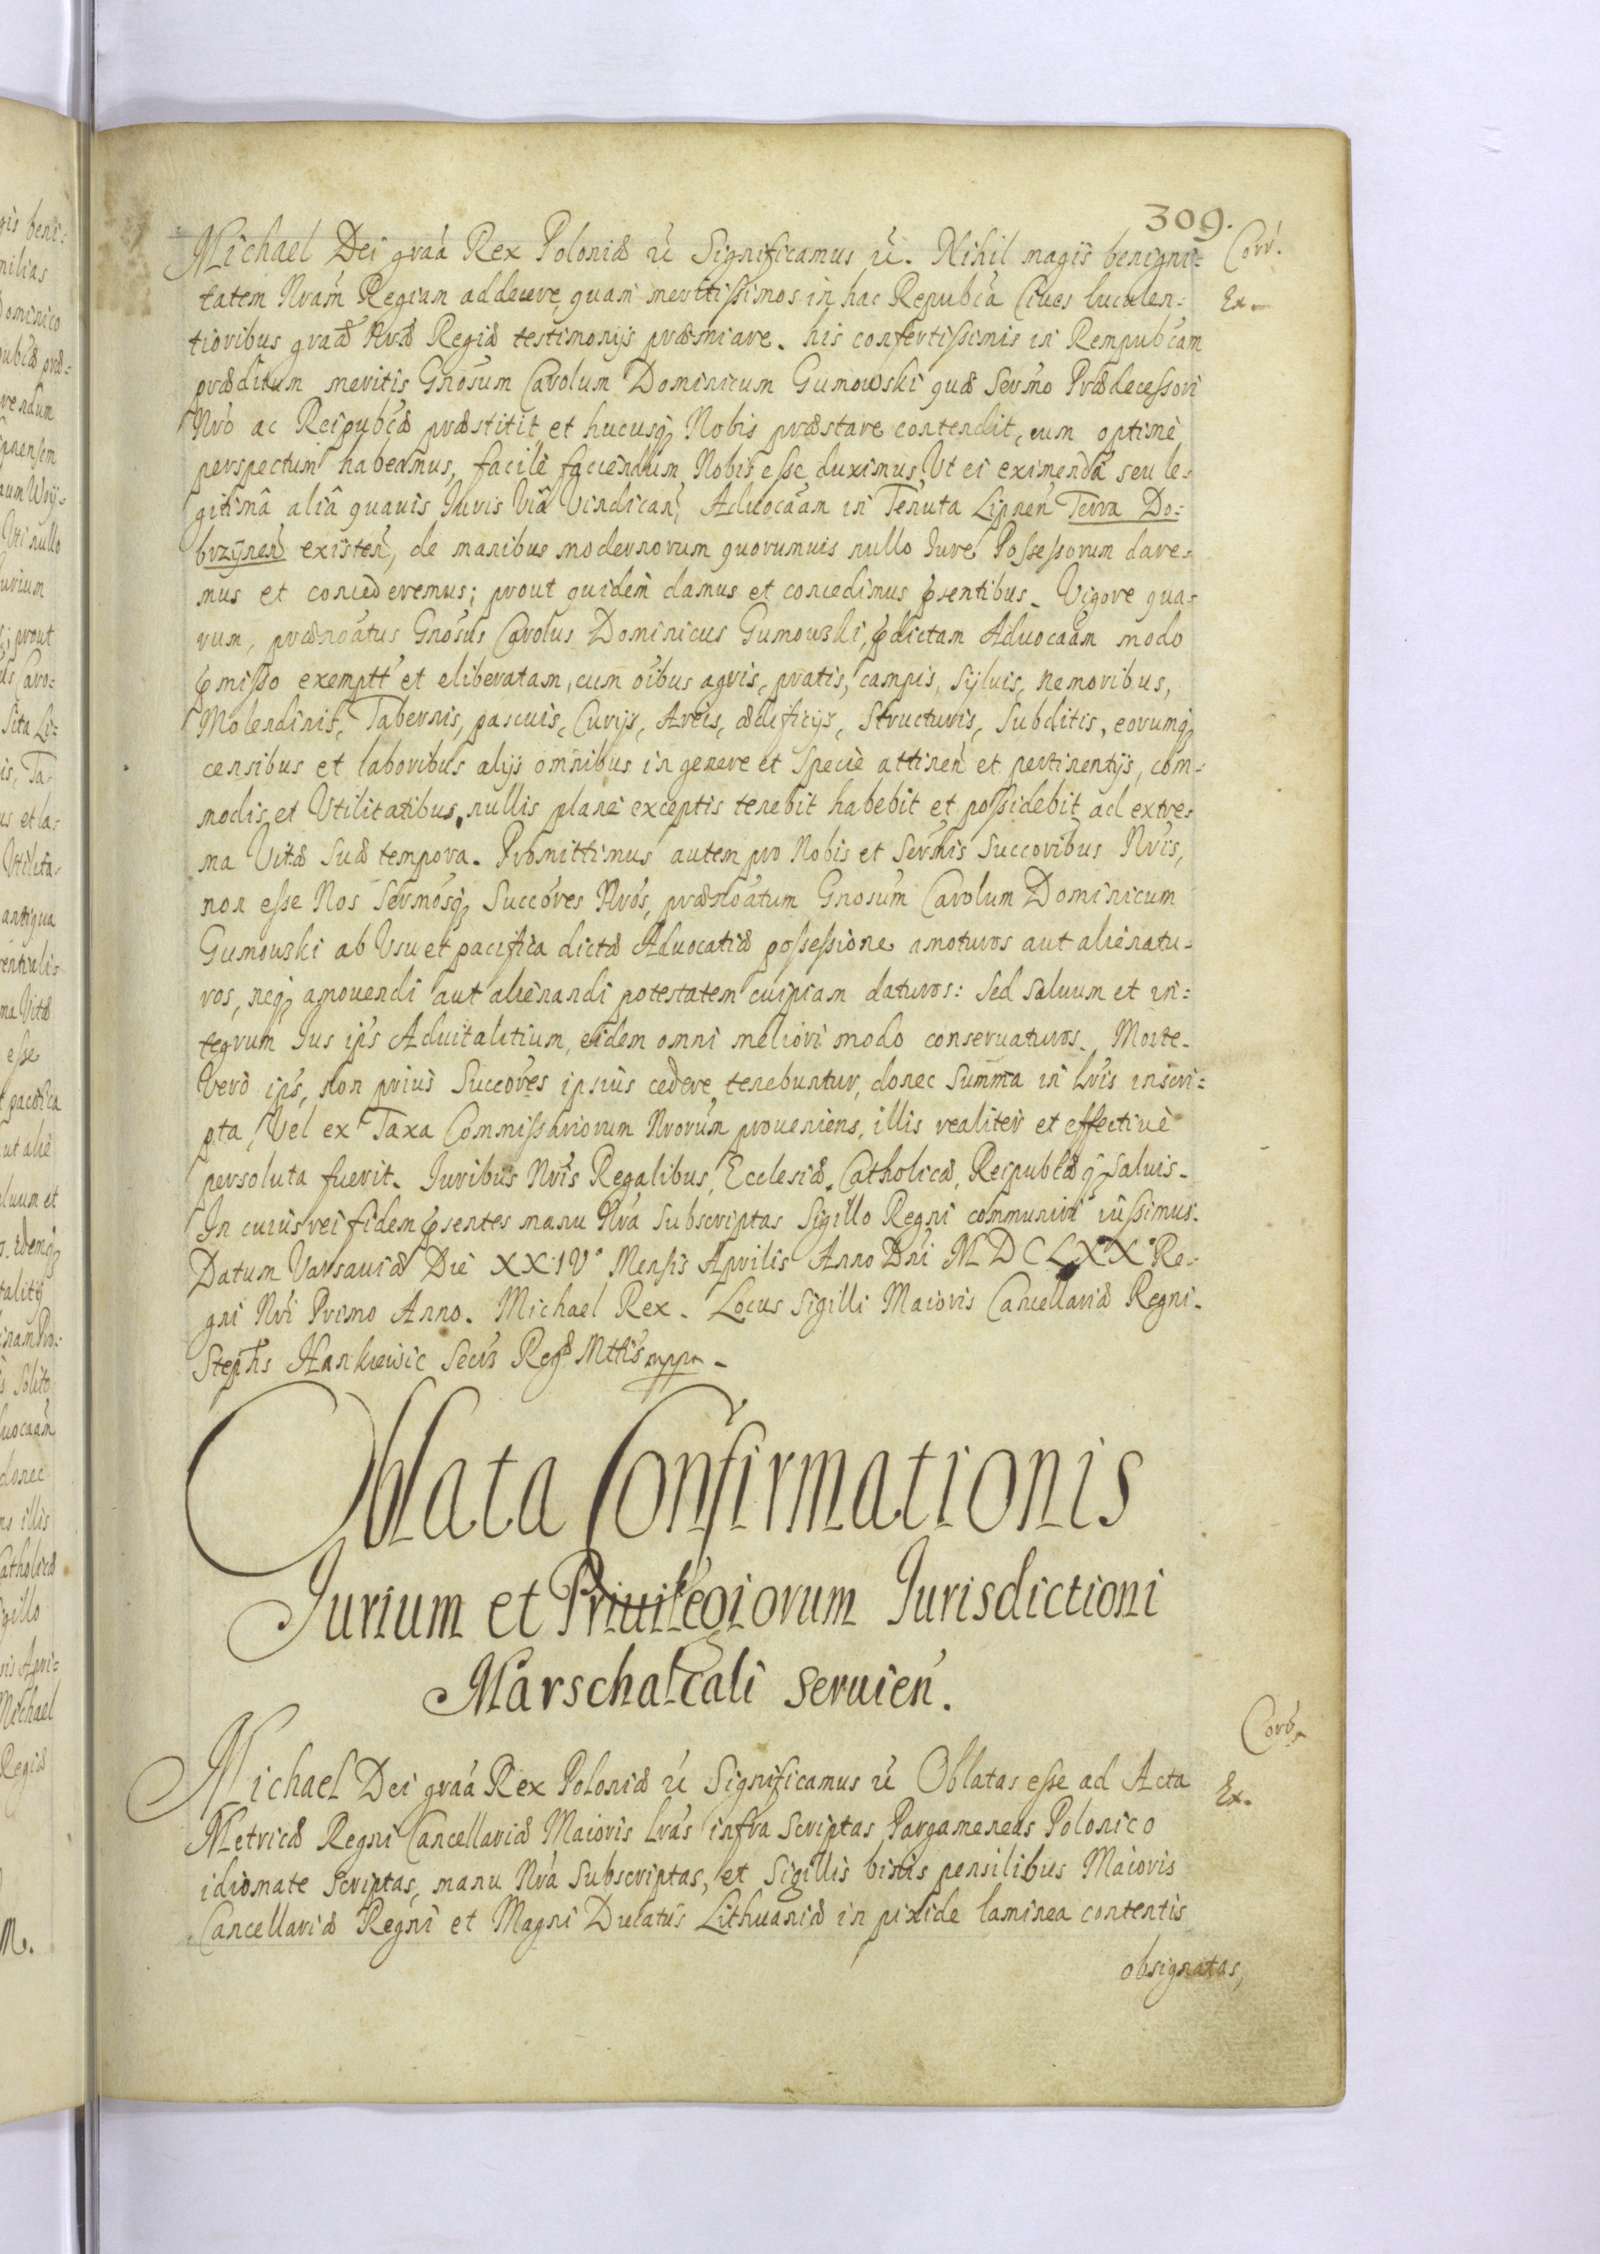 309.
Michael Dei graã Rex Poloniæ etc Significamus etc. Nihil magis benigni- Corr.
tatem Nram Regiam addecere, quam meritissimos in hac Repubca Ciues luculen- Ex.
tioribus graæ Nræ Regiæ testimonijs præmiare. his confertissimis in Rempubcam
præditum meritis Gnosum Carolum Dominicum Gumowski quæ Sermo Prædecessori
Nro ac Reipubcæ præstitit et hucusq Nobis præstare contendit, cum optimè
perspectum habeamus, facilè faciendum Nobis esse duximus, Vt ei eximendã seu le-
gitimâ aliâ quauis Iuris Viâ Vindican, Aduocaãm in Tenuta Lipnen Terra Do-
brzÿnen existen, de manibus modernorum quorumuis nullo Iure Possessorum dare-
mus et concederemus; prout quidem damus et concedimus pñsentibus. Vigore qua-
rum, prænoatus Gnosus Carolus Dominicus Gumowski, pdictam Aduocaãm modo
pmisso exemptt et eliberatam, cum oibus agris, pratis, campis, Syluis, nemoribus,
Molendinis, Tabernis, pascuis, Curijs, Areis, ædificijs, Structuris, Subditis, eorumq
censibus et laboribus alijs omnibus in genere et Specie attinen et pertinentijs, com-
modis et Vtilitatibus, nullis planè exceptis tenebit habebit et possidebit ad extre-
ma Vitæ Suæ tempora. Promittimus autem pro Nobis et Sermis Succoribus Nris,
non esse Nos Sermosq Succores Nros, prænoatum Gnosum Carolum Dominicum
Gumowski ab Vsu et pacifica dictæ Aduocatiæ possessione amoturos aut alienatu-
ros, neq amouendi aut alienandi potestatem cuipiam daturos: Sed saluum et in-
tegrum Ius ips Aduitalitium, eidem omni meliori modo conseruaturos. Morte
Verò ips, non prius Succores ipsius cedere tenebuntur, donec Summa in Lris inscri-
pta, Vel ex Taxa Commissariorum Nrorum proueniens, illis realiter et effectiuè
persoluta fuerit. Iuribus Nris Regalibus, Ecclesiæ Catholicæ, Reipubcæ q Saluis.
In cuius rei fidem psentes manu Nra Subscriptas Sigillo Regni communiri iussimus.
Datum Varsauiæ Die XXIVo Mensis Aprilis Anno Dni MDCLXXo Re-
gni Nri Primo Anno. Michael Rex. Locus Sigilli Maioris Cancellariæ Regni.
Stephs Hankiewic Secrs Regæ Mttis mppr.
Oblata Confirmationis
Iurium et Priuilegiorum Iurisdictioni
Marschalcali seruien.
Corr.
Michael Dei graã Rex Poloniæ etc Significamus etc Oblatas esse ad Acta Ex.
Metricæ Regni Cancellariæ Maioris Lras infra Scriptas Pargameneas Polonico
idiomate Scriptas, manu Nra Subscriptas, et Sigillis binis pensilibus Maioris
Cancellariæ Regni et Magni Ducatus Lithuaniæ in pixide laminea contentis
obsignatas,